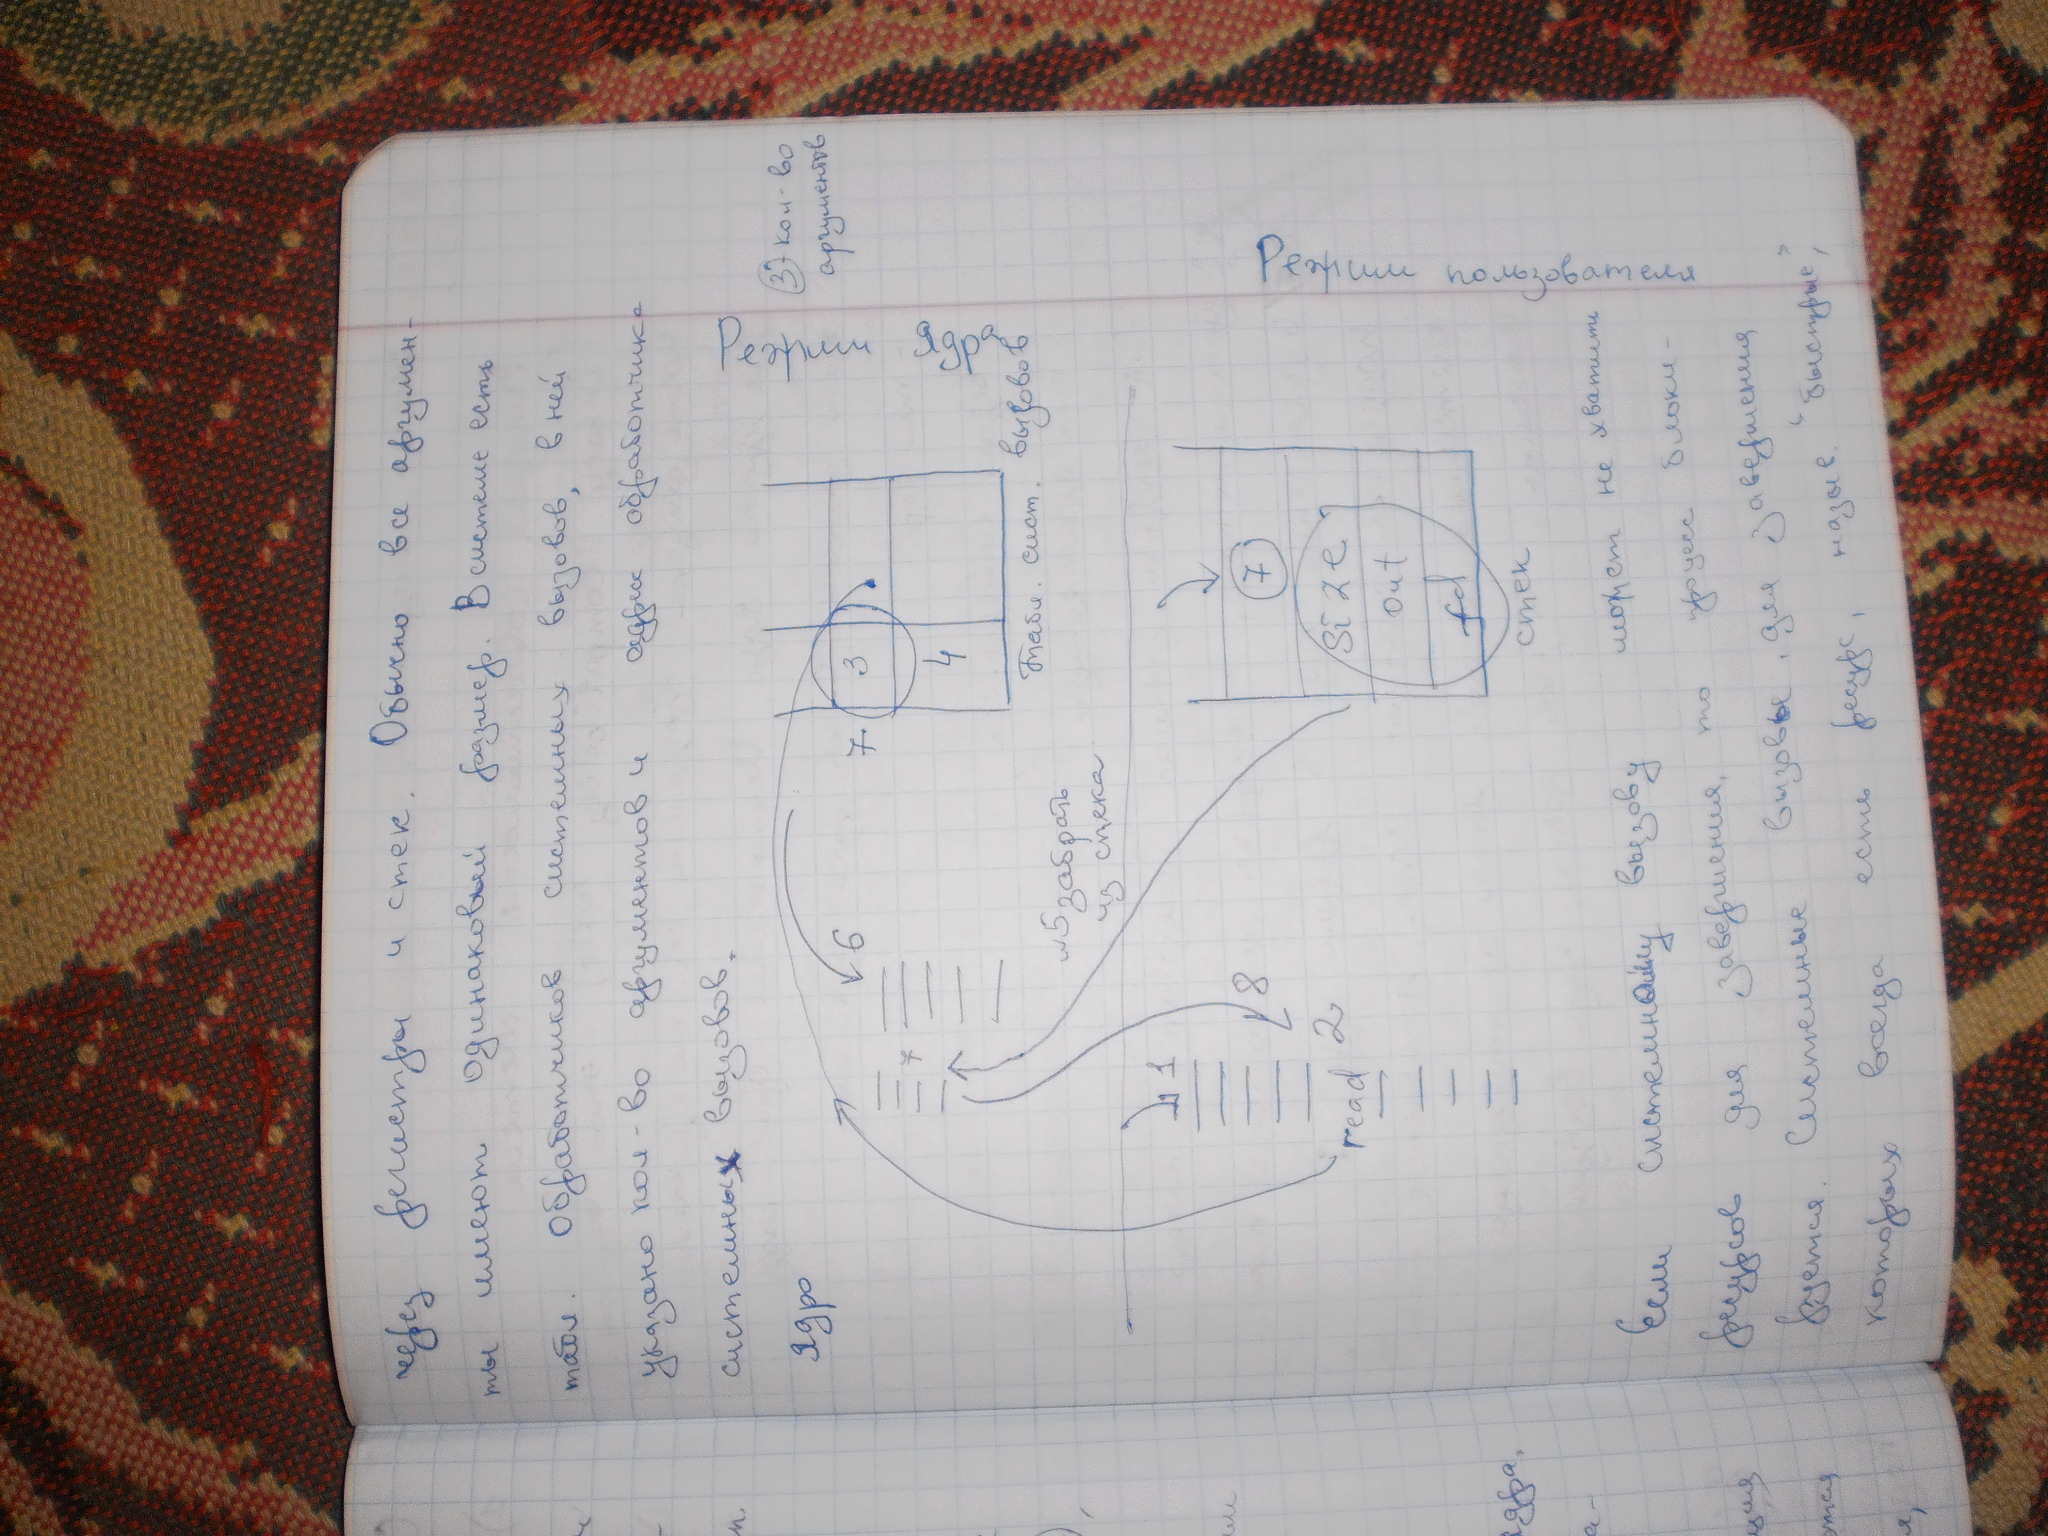 через регистры и стек. Обычно все аргумен-
ты имеют одинаковый размер. В системе есть
табл. обработчиков системных вызовов, в ней
указано кол-во аргументов и адрес обработчика
системных вызовов.
Ядро
Режим ядра
③ кол-во
аргументов
6
7.
3
4
7
Табл. сист. вызовов
5 забрать
из стека
1
8
read 2
7
Size
out
fd
стек
Режим пользователя
Если системному вызову может не хватить
ресурсов для завершения, то процесс блоки-
руется. Системные вызовы, для завершения
которых всегда есть ресурс, назыв. "быстрые",
ядра.